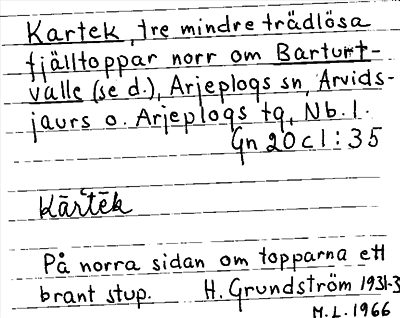 Kartek, tre mindre trädlösa
fjälltoppar norr om Barturt-
valle (se d.), Arjeplogs sn, Arvids-
jaurs o. Arjeplogs tg, Nb.l.
Gn 20 c 1:35
Kārtēk
På norra sidan om topparna ett
brant stup. H. Grundström 1931-3
M.L. 1966